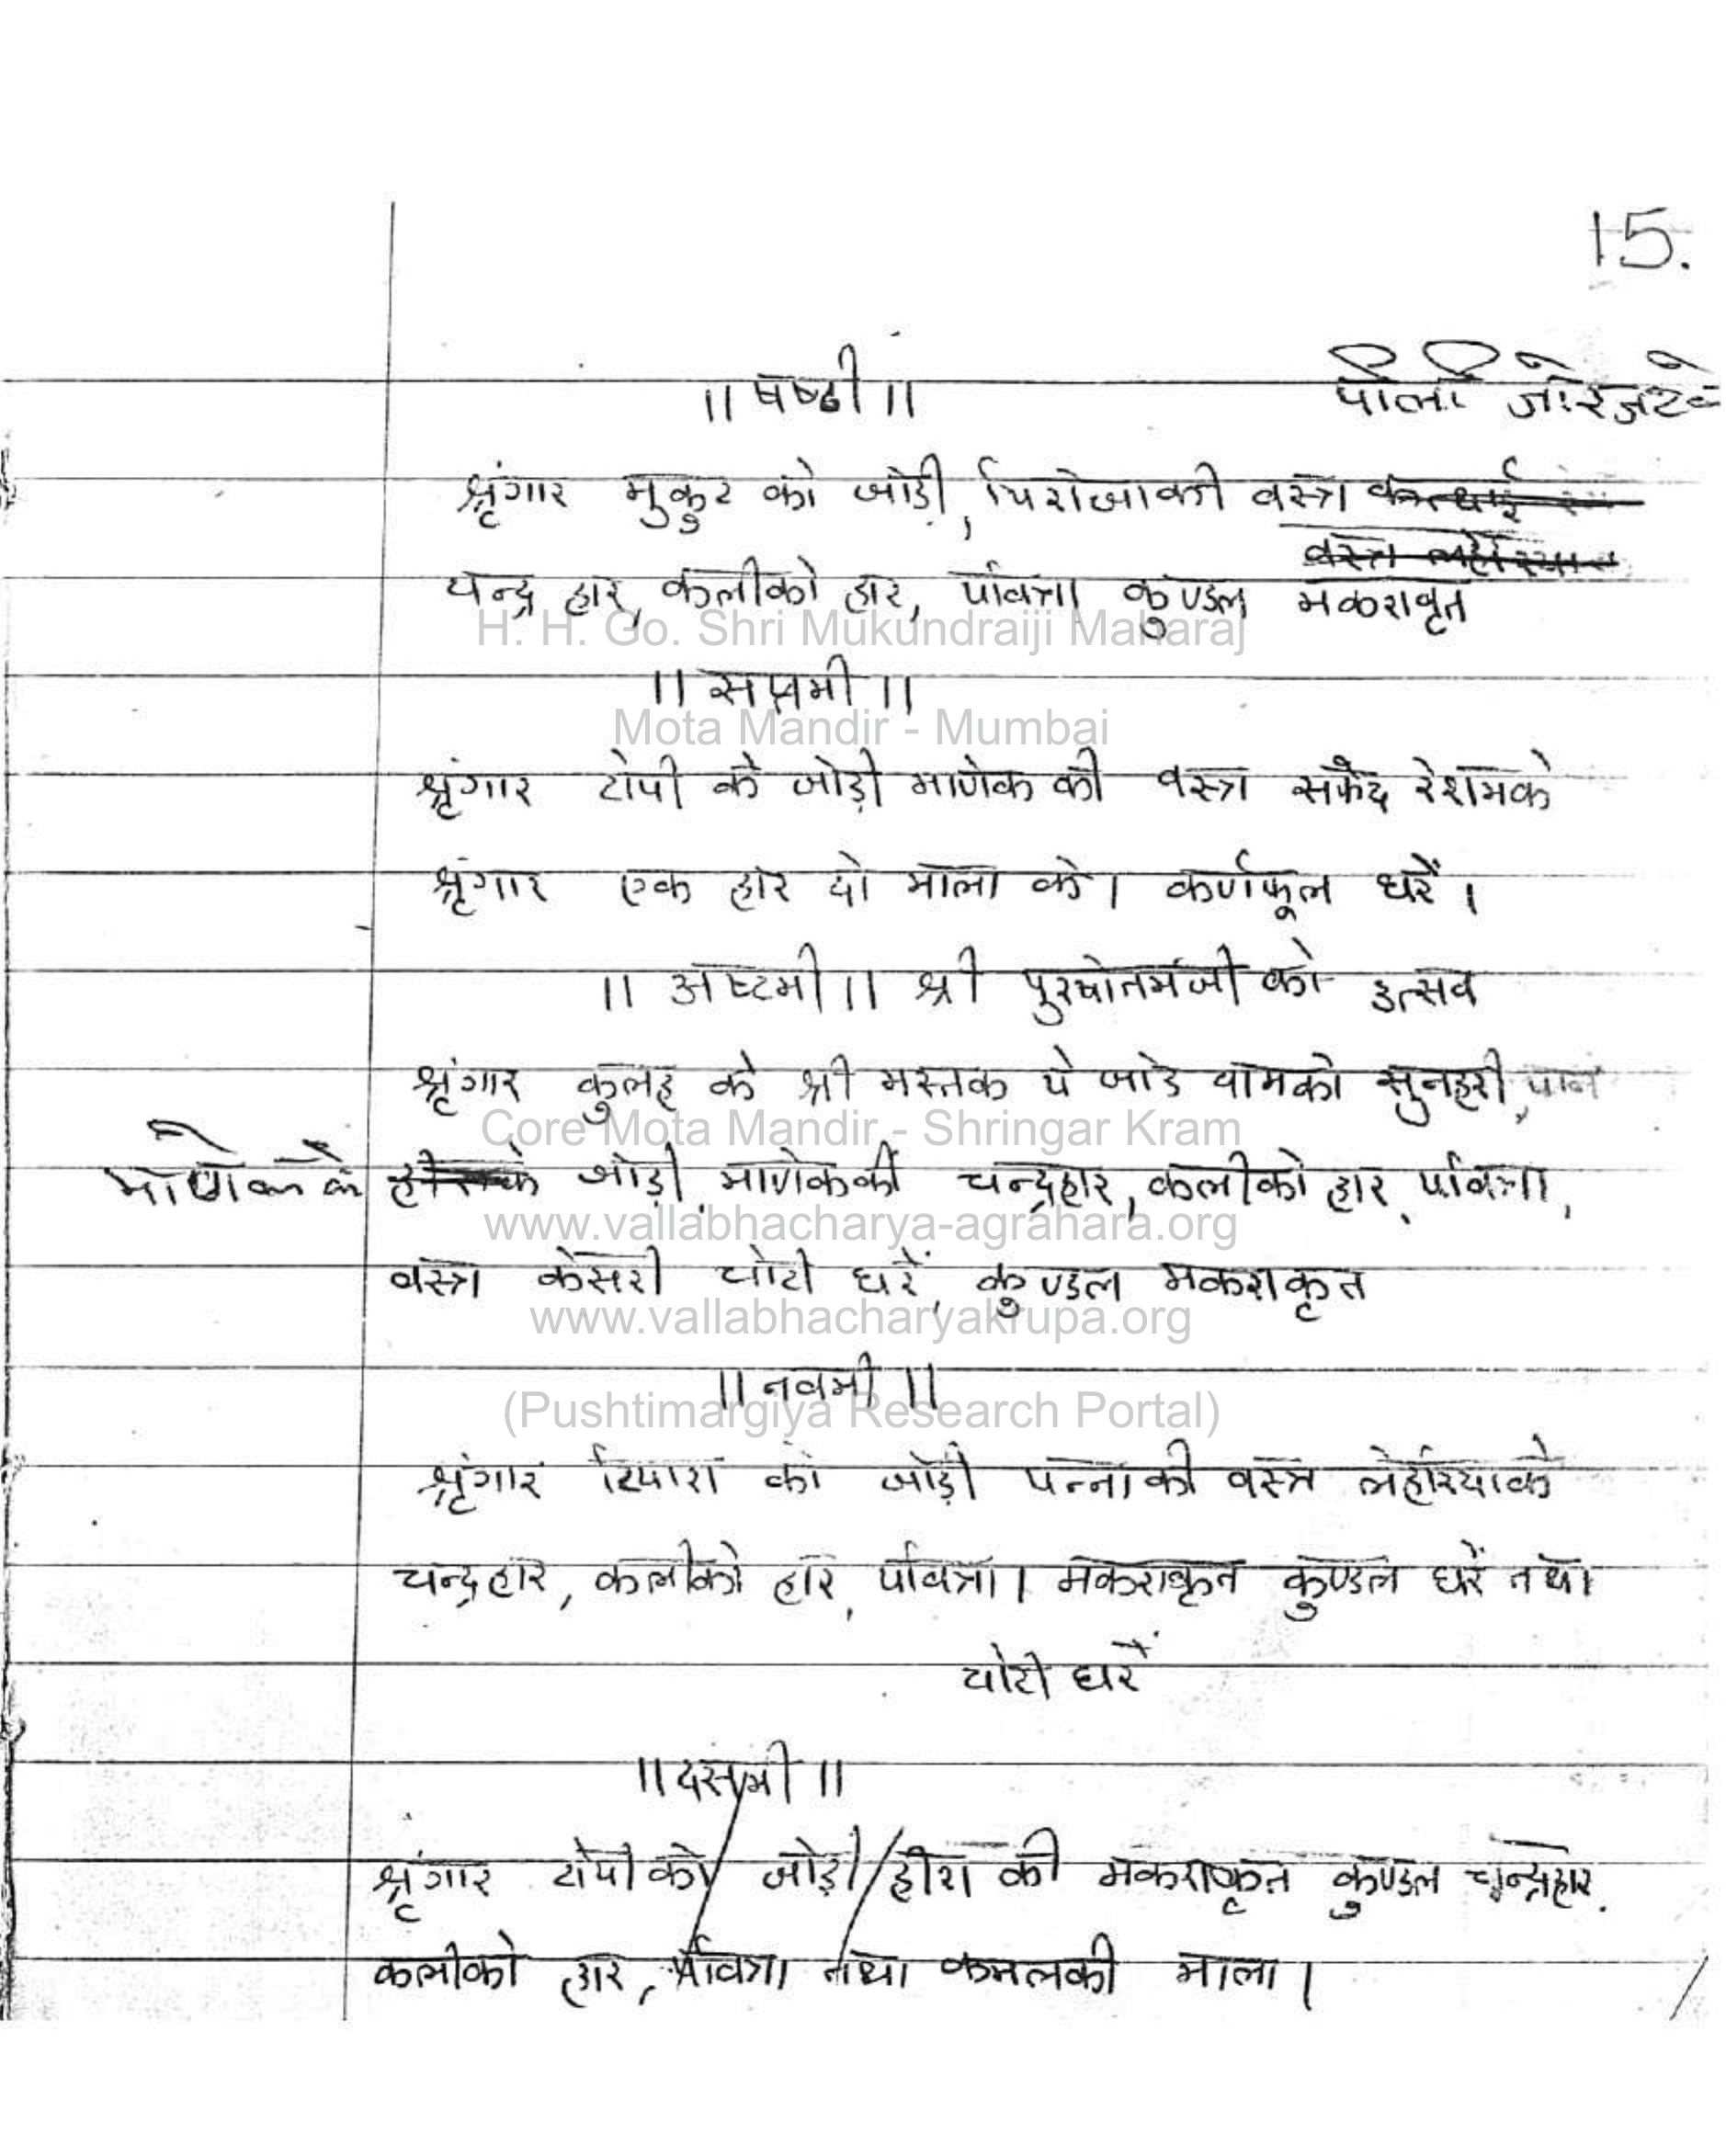 15.
॥ षष्ठी ॥ पीली जोरजटके
श्रृंगार मुकुट को जोड़ी, पिरोजाकी वस्त्र
चन्द्र हार, कलीको हार, पवित्रा कुण्डल मकराकृत
H. H. Go. Shri Mukundraiji Maharaj
॥ सप्तमी ॥
Mota Mandir - Mumbai
श्रृंगार टोपी को जोड़ी माणेक की वस्त्र सफेद रेशमके
श्रृंगार एक हार दो माला को। कर्णफूल धरें।
॥ अष्टमी ॥ श्री पुरषोतमजी को उत्सव
श्रृंगार कुलह को श्री मस्तक पे जोड चामको सुनहरी, पान
Core Mota Mandir - Shringar Kram
माणेक के जोड़ी, माणेककी चन्द्रहार, कलीको हार, पवित्रा,
www.vallabhacharya-agrahara.org
वस्त्र केसरी चोटी धरें, कुण्डल मकराकृत
www.vallabhacharyakrupa.org
॥ नवमी ॥
(Pushtimargiya Research Portal)
श्रृंगार टिपारा को जोड़ी पन्नाकी वस्त्र लेहरियाके
चन्द्रहार, कलीको हार, पवित्रा। मकराकृत कुण्डल धरें तथा
चोटी धरें
॥ दसमी ॥
श्रृंगार टोपी को जोड़ी हीरा की मकराकृत कुण्डल चन्द्रहार,
कलीको हार, पवित्रा तथा कमलकी माला।